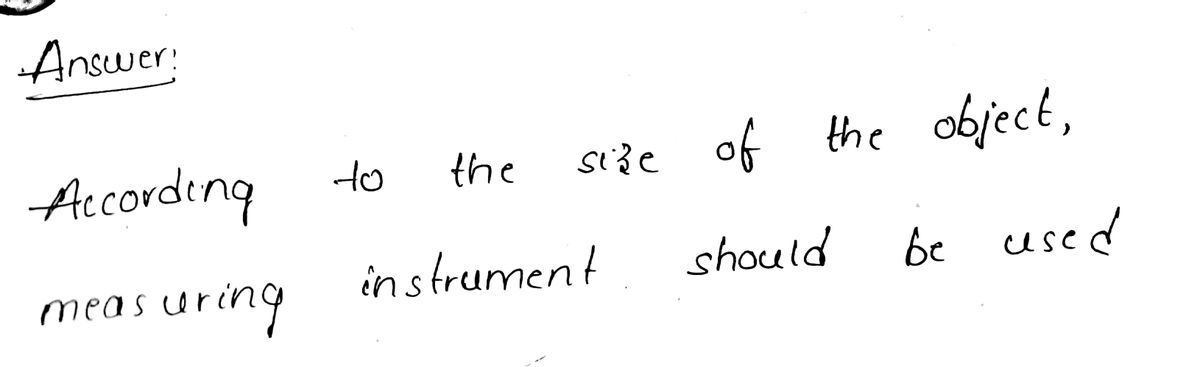 Answer:
According to the size of the object,
measuring instrument should be used